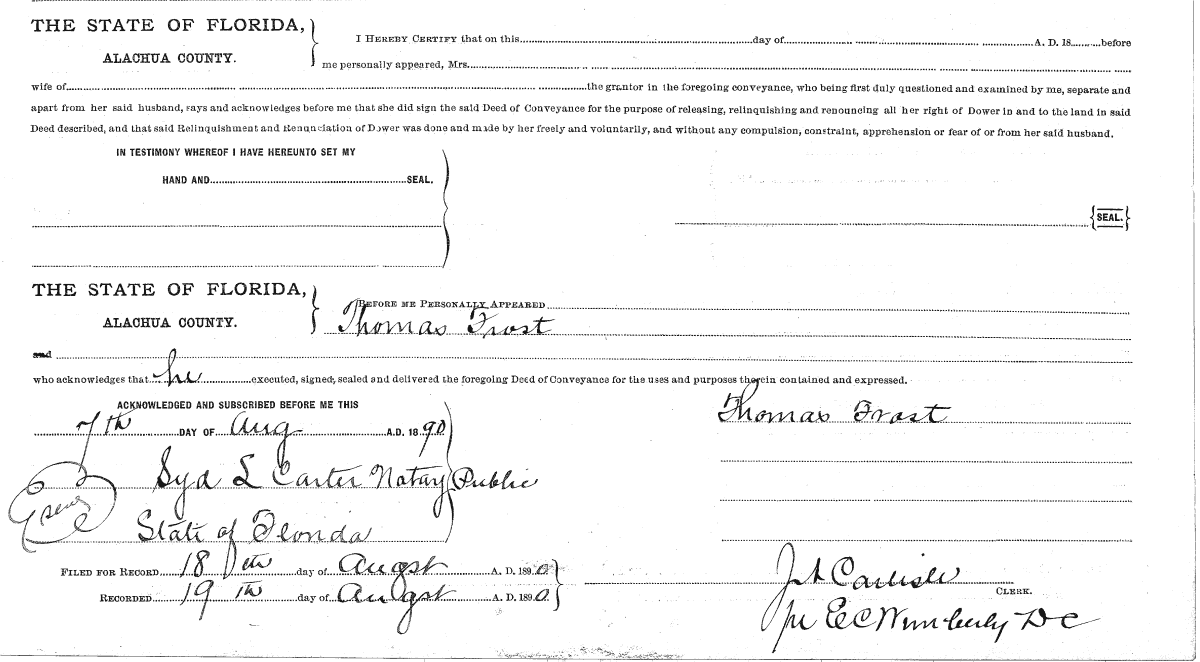 THE STATE OF FLORIDA,
ALACHUA COUNTY.
I HEREBY CERTIFY that on this day of A. D. 18 before
me personally appeared, Mrs.
wife of the grantor in the foregoing conveyance, who being first duly questioned and examined by me, separate and
apart from her said husband, says and acknowledges before me that she did sign the said Deed of Conveyance for the purpose of releasing, relinquishing and renouncing all her right of Dower in and to the land in said
Deed described, and that said Relinquishment and Renunciation of Dower was done and made by her freely and voluntarily, and without any compulsion, constraint, apprehension or fear of or from her said husband.
IN TESTIMONY WHEREOF I HAVE HEREUNTO SET MY
HAND AND SEAL.
SEAL.
THE STATE OF FLORIDA,
ALACHUA COUNTY.
BEFORE ME PERSONALLY APPEARED
Thomas Frost
and
who acknowledges that he executed, signed, sealed and delivered the foregoing Deed of Conveyance for the uses and purposes therein contained and expressed.
Thomas Frost
ACKNOWLEDGED AND SUBSCRIBED BEFORE ME THIS
7th DAY OF Aug A.D. 1890
Syd L Carter Notary Public
State of Florida
FILED FOR RECORD 18th day of Augst A. D. 1890
RECORDED 19th day of Augst A. D. 1890
Carlisle
CLERK.
E C Wimberly DC